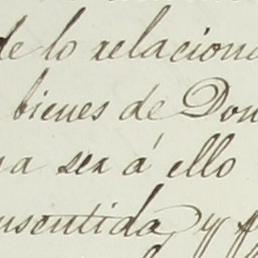 de lo relacion
bienes de Don
a ser á ello
nsentida, y